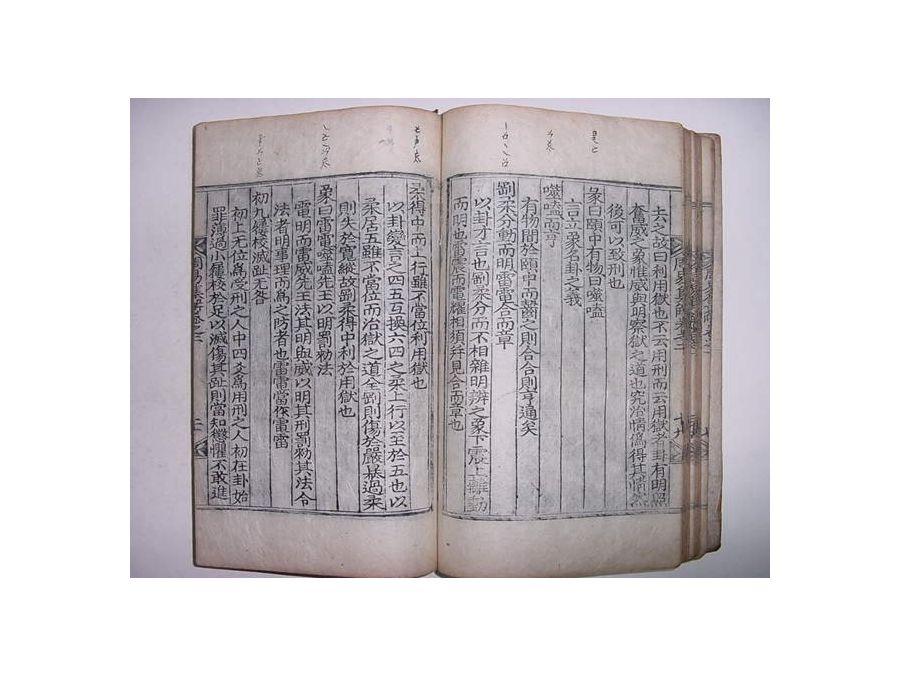 去之故曰利用獄也不云用刑而云用獄者卦有明照
奮威之象惟威與明察獄之道也究治情僞得其情然
後可以致刑也
彖曰頤中有物曰噬嗑
言立象名卦之義
噬嗑而亨
有物間於頤中而齧之則合合則亨通矣
剛柔分動而明雷電合而章
以卦才言也剛柔分而不相雜明辨之象下震上離動
而明也雷震而電耀相須並見合而章也
柔得中而上行雖不當位利用獄也
以卦變言之四五互換六四之柔上行以至於五也以
柔居五雖不當位而治獄之道全剛則傷於嚴暴過柔
則失於寬縱故剛柔得中利於用獄也
象曰雷電噬嗑先王以明罰勑法
電明而雷威先王法其明與威以明其刑罰勑其法令
法者明事理而爲之防者也雷電當作電雷
初九屨校滅趾无咎
初上无位爲受刑之人中四爻爲用刑之人初在卦始
罪薄過小屨校於足以滅傷其趾則當知懲懼不敢進